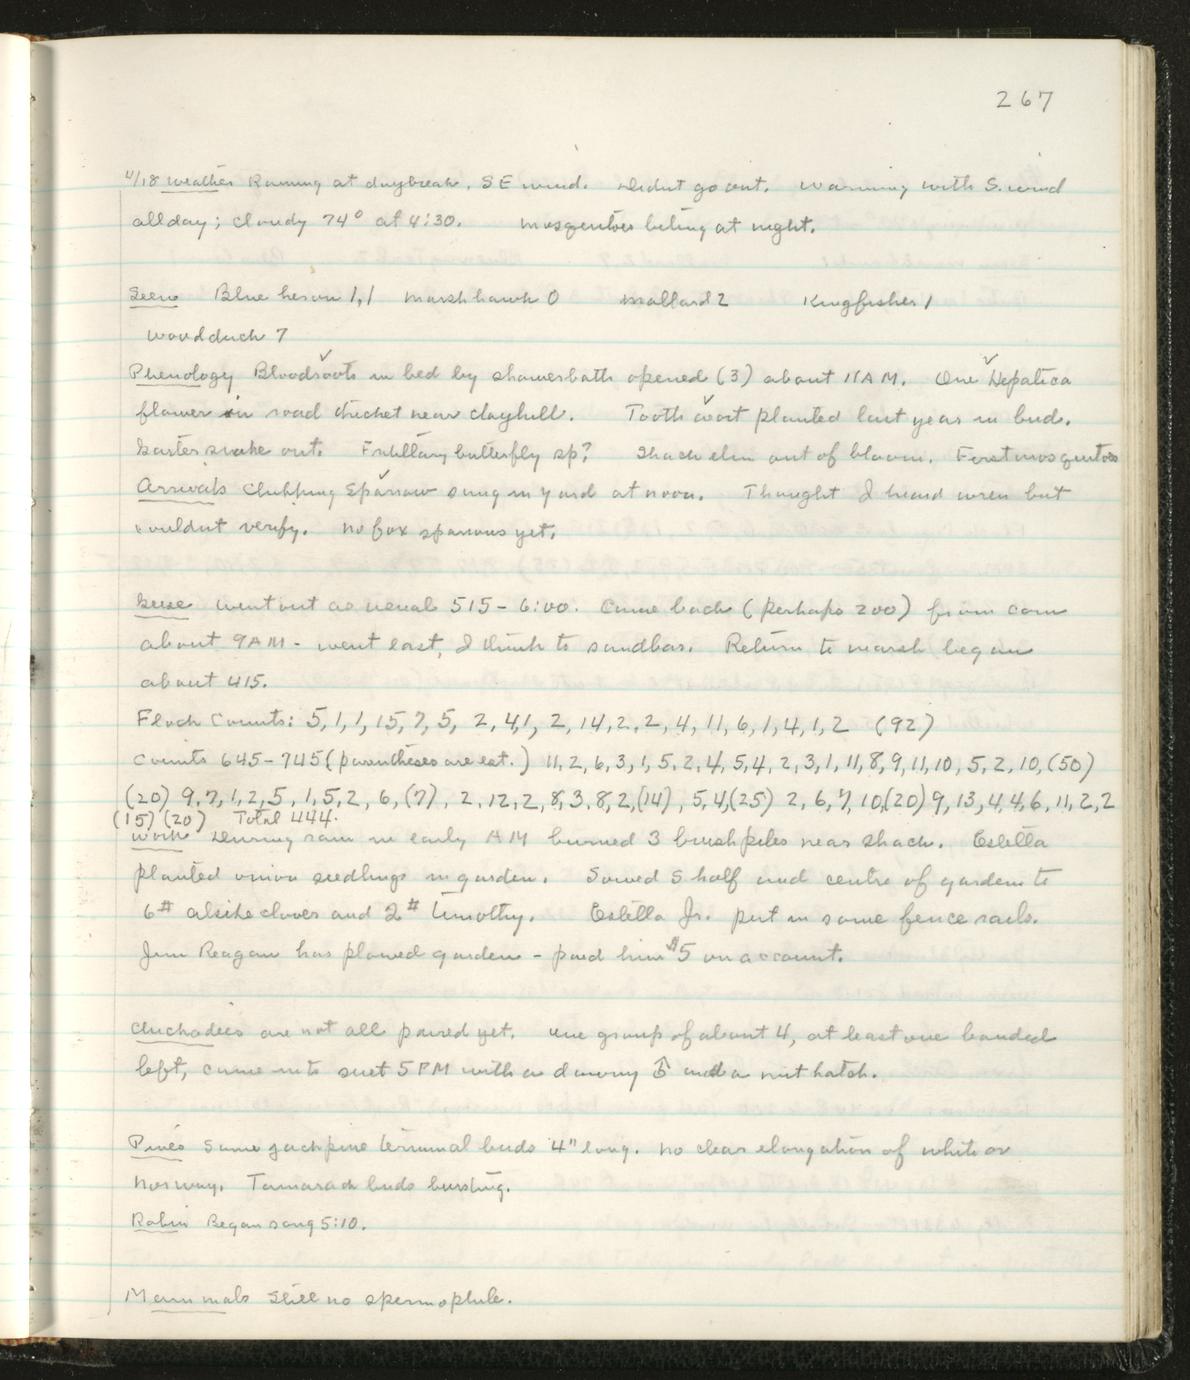 267
4/18 Weather Raining at daybreak, SE wind. Didnt go out. Warming with S. wind
all day; cloudy 74° at 4:30. Mosquitoes biting at night.
Seen Blue heron 1,1 Marsh hawk 0 Mallard 2 Kingfisher 1
Wood duck 7
Phenology Bloodroots in bed by showerbath opened (3) about 11 AM. One Hepatica
flower in road thicket near clayhill. Toothwort planted last year in bud.
Garter snake out. Fritillary butterfly sp? Shack elm out of bloom. First mosquitoes
Arrivals Chipping Sparrow sung in yard at noon. Thought I heard wren but
couldnt verify. No fox sparrows yet.
Geese went out as usual 515 - 6:00. Came back (perhaps 200) from corn
about 9 AM - went east, I think to sandbar. Return to marsh began
about 415.
Flock Counts: 5, 1, 1, 15, 7, 5, 2, 4, 1, 2, 14, 2, 2, 4, 11, 6, 1, 4, 1, 2 (92)
Counts 645-745 (parentheses are est.) 11, 2, 6, 3, 1, 5, 2, 4, 5, 4, 2, 3, 1, 11, 8, 9, 11, 10, 5, 2, 10, (50)
(20) 9, 7, 1, 2, 5, 1, 5, 2, 6, (7), 2, 12, 2, 8, 3, 8, 2, (14), 5, 4, (25) 2, 6, 7, 10, (20) 9, 13, 4, 4, 6, 11, 2, 2
(15) (20) Total 444.
Work During rain in early AM burned 3 brushpiles near shack. Estella
planted onion seedlings in garden. Sowed S half and centre of garden to
6# alsike clover and 2# timothy. Estella Jr. put in some fence rails.
Jim Reagan has plowed garden - paid him $5 on account.
Chickadees are not all paired yet. One group of about 4, at least one banded
left, came into suet 5 PM with a downy ♂ and a nuthatch.
Pines Some jackpine terminal buds 4" long. No clear elongation of white or
Norway. Tamarack buds bursting.
Robin Began song 5:10.
Mammals Still no spermophile.